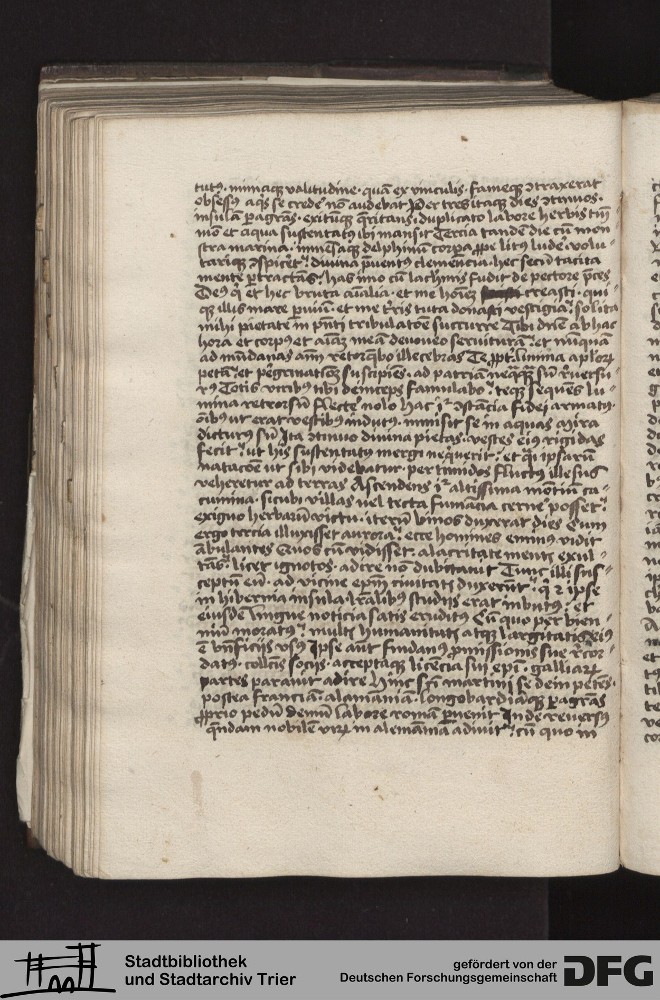 tutus. nimiaque valitudine. quam ex vinculis. fameque contraxerat
obsessus aquis se credere non audebat Per tres itaque dies continuos.
insulam peragrans. exitumque queritans. duplicato labore herbis tantummodo
et aqua sustentatus ibi mansit Tercia tandem die cum mon-
stra marina. delphinum corpora prope litus ludere. volu-
tarique conspiceret. divina preventus clemencia. hec secum tacita
mente pertractans. has imo cum lachrimis fudit de pectore preces
Deus qui et hec bruta animalia. et me hominem creasti. qui-
que illis mare pervium. et me terris tuta donasti vestigia. solita
mihi pietate in presenti tribulatione succurre Tibi domine ab hac
hora et corpus et animam meam devoveo servituram. et nunquam
ad mundanas amodo retorquebo illecebras Te propter limina apostolorum
petam. et ad patriam nequaquam sum reversu-
rus Totis viribus tibi deinceps famulabor. teque sequens lu-
mina retrorsum flectere nolo Hac igitur constancia fidei armatus.
omnibus ut erat vestibus indutus. inmisit se in aquas Mira
dicturus sum Ita continuo divina pietas. vestes eius rigidas
fecit. ut his sustentatus mergi nequiret. et quasi ipsarum
natatione ut sibi videbatur. per tumidos fluctus illesus
veheretur ad terras Ascendens igitur altissima montium ca-
cumina. sicubi villas vel tecta fumancia cernere posset.
exiguo herbarum victu. iterum binos duxerat dies Cum
ergo tercia illuxisset aurora. ecce homines eminus vidit
ambulantes Quos cum vidisset. alacritate mentis exul-
tans. licet ignotos. adire non dubitavit Tunc illi sus-
ceptum eum. ad vicine episcopum civitatis duxerunt. qui et ipse
in hibernia insula liberalibus studiis erat imbutus. et
eiusdem lingue noticia satis eruditus Cum quo per bien-
nium moratus. multis humanitatis atque largitatis eius
est beneficiis usus Ipse autem fundamus promissionis sue recor-
datus. collectis sociis. acceptaque licencia sui episcopi. galliarum
partes paravit adire Hinc sancti martini sedem petens.
postea franciam. alamaniam. longobardiamque peragrans
proprio pedum demum labore romam pervenit Inde reversus
quendam nobilem virum in alemania adivit. cum quo in
Stadtbibliothek
und Stadtarchiv Trier
gefördert von der
Deutschen Forschungsgemeinschaft
DFG